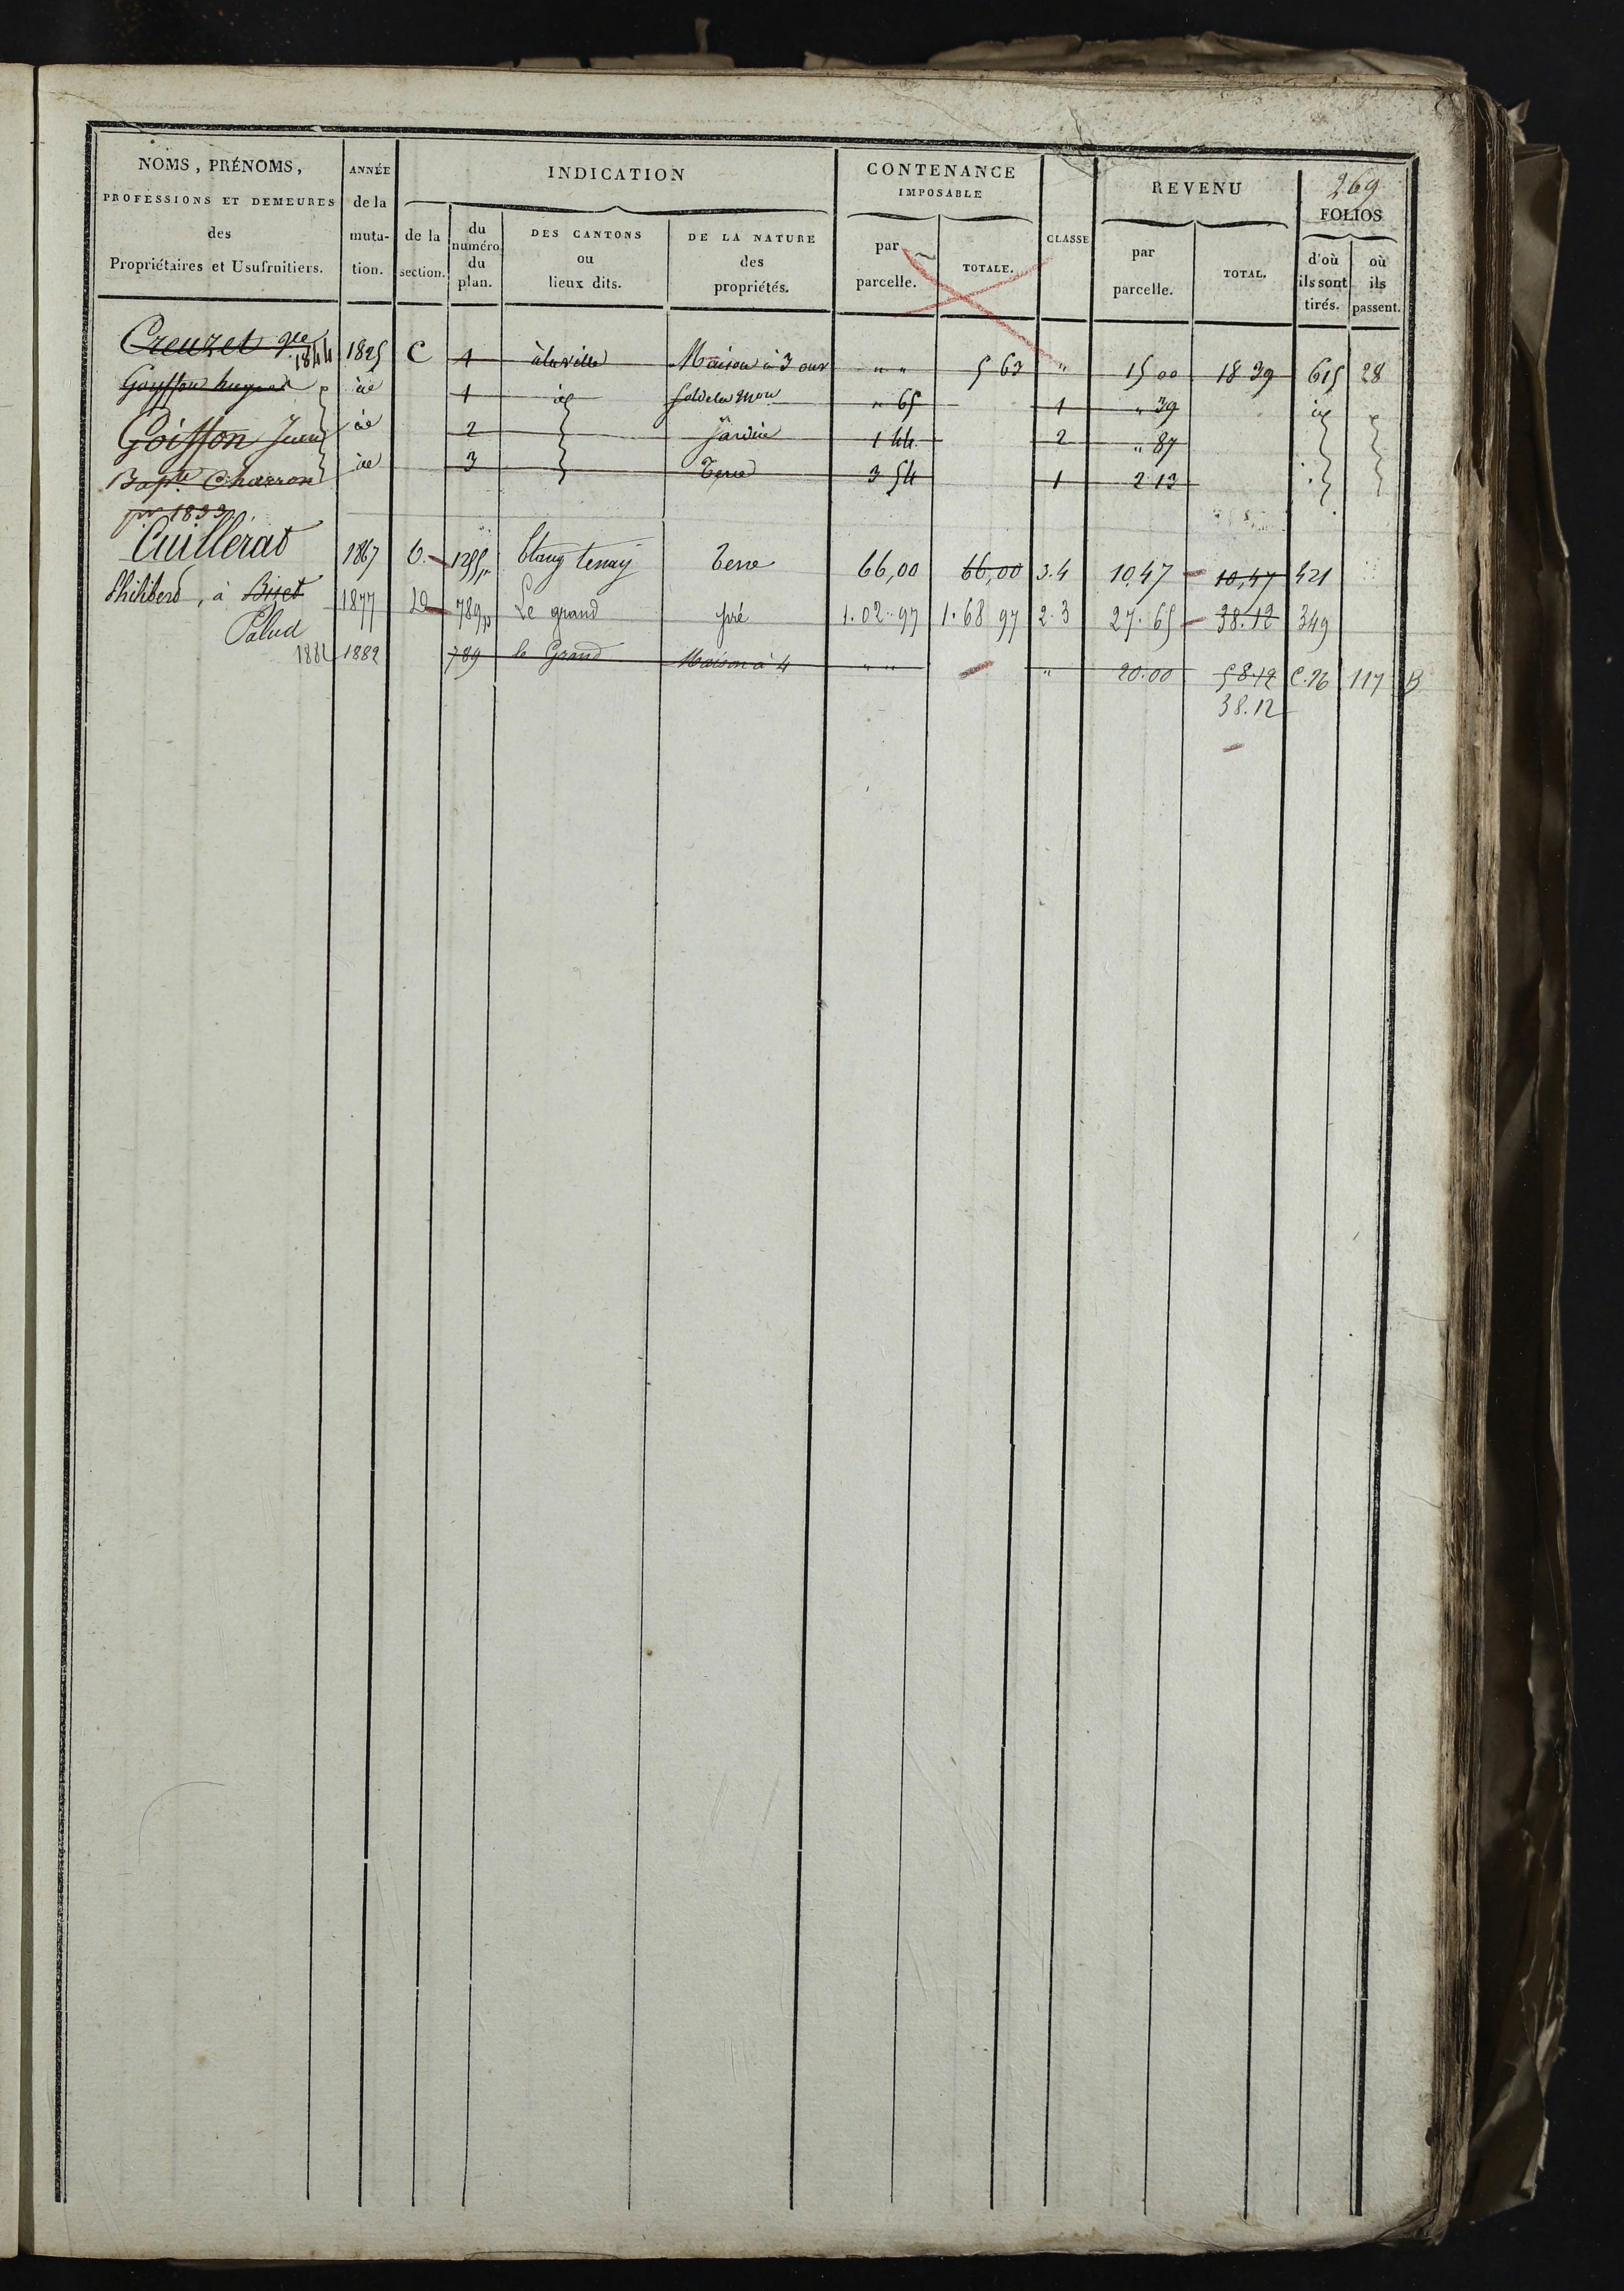 269
NOMS, PRÉNOMS,
PROFESSIONS ET DEMEURES
des
Propriétaires et Usufruitiers.
ANNÉE
de la
muta-
tion.
INDICATION
de la
section.
du
numéro
du
plan.
DES CANTONS
ou
lieux dits.
DE LA NATURE
des
propriétés.
CONTENANCE
IMPOSABLE
par
parcelle.
TOTALE.
CLASSE
REVENU
par
parcelle.
TOTAL.
FOLIOS
d'où
ils sont
tirés.
où
ils
passent.
Creuzet 1844 1825 C 1 à la ville Maison à 3 ouv " " 5 63 " 15 00 18 39 615 28
Goyffon 1 Sol de la mon " 65 1 " 39
Goiffon Jean 2 Jardin 1 44 2 " 87
Bapte Charron 3 Terre 3 54 1 2 13
pr 1833
Cuillerat 1867 C 1255 Etang Tenay Terre 66,00 66,00 3.4 10,47 10,47 421
Philibert, à Bizet 1877 D 789 Le grand pré 1.02.97 1.68 97 2.3 27.65 38.12 349
Palud
1882 1882 789 le Grand Maison à 4 " " " 20.00 58 12 C.26 117 B
38.12